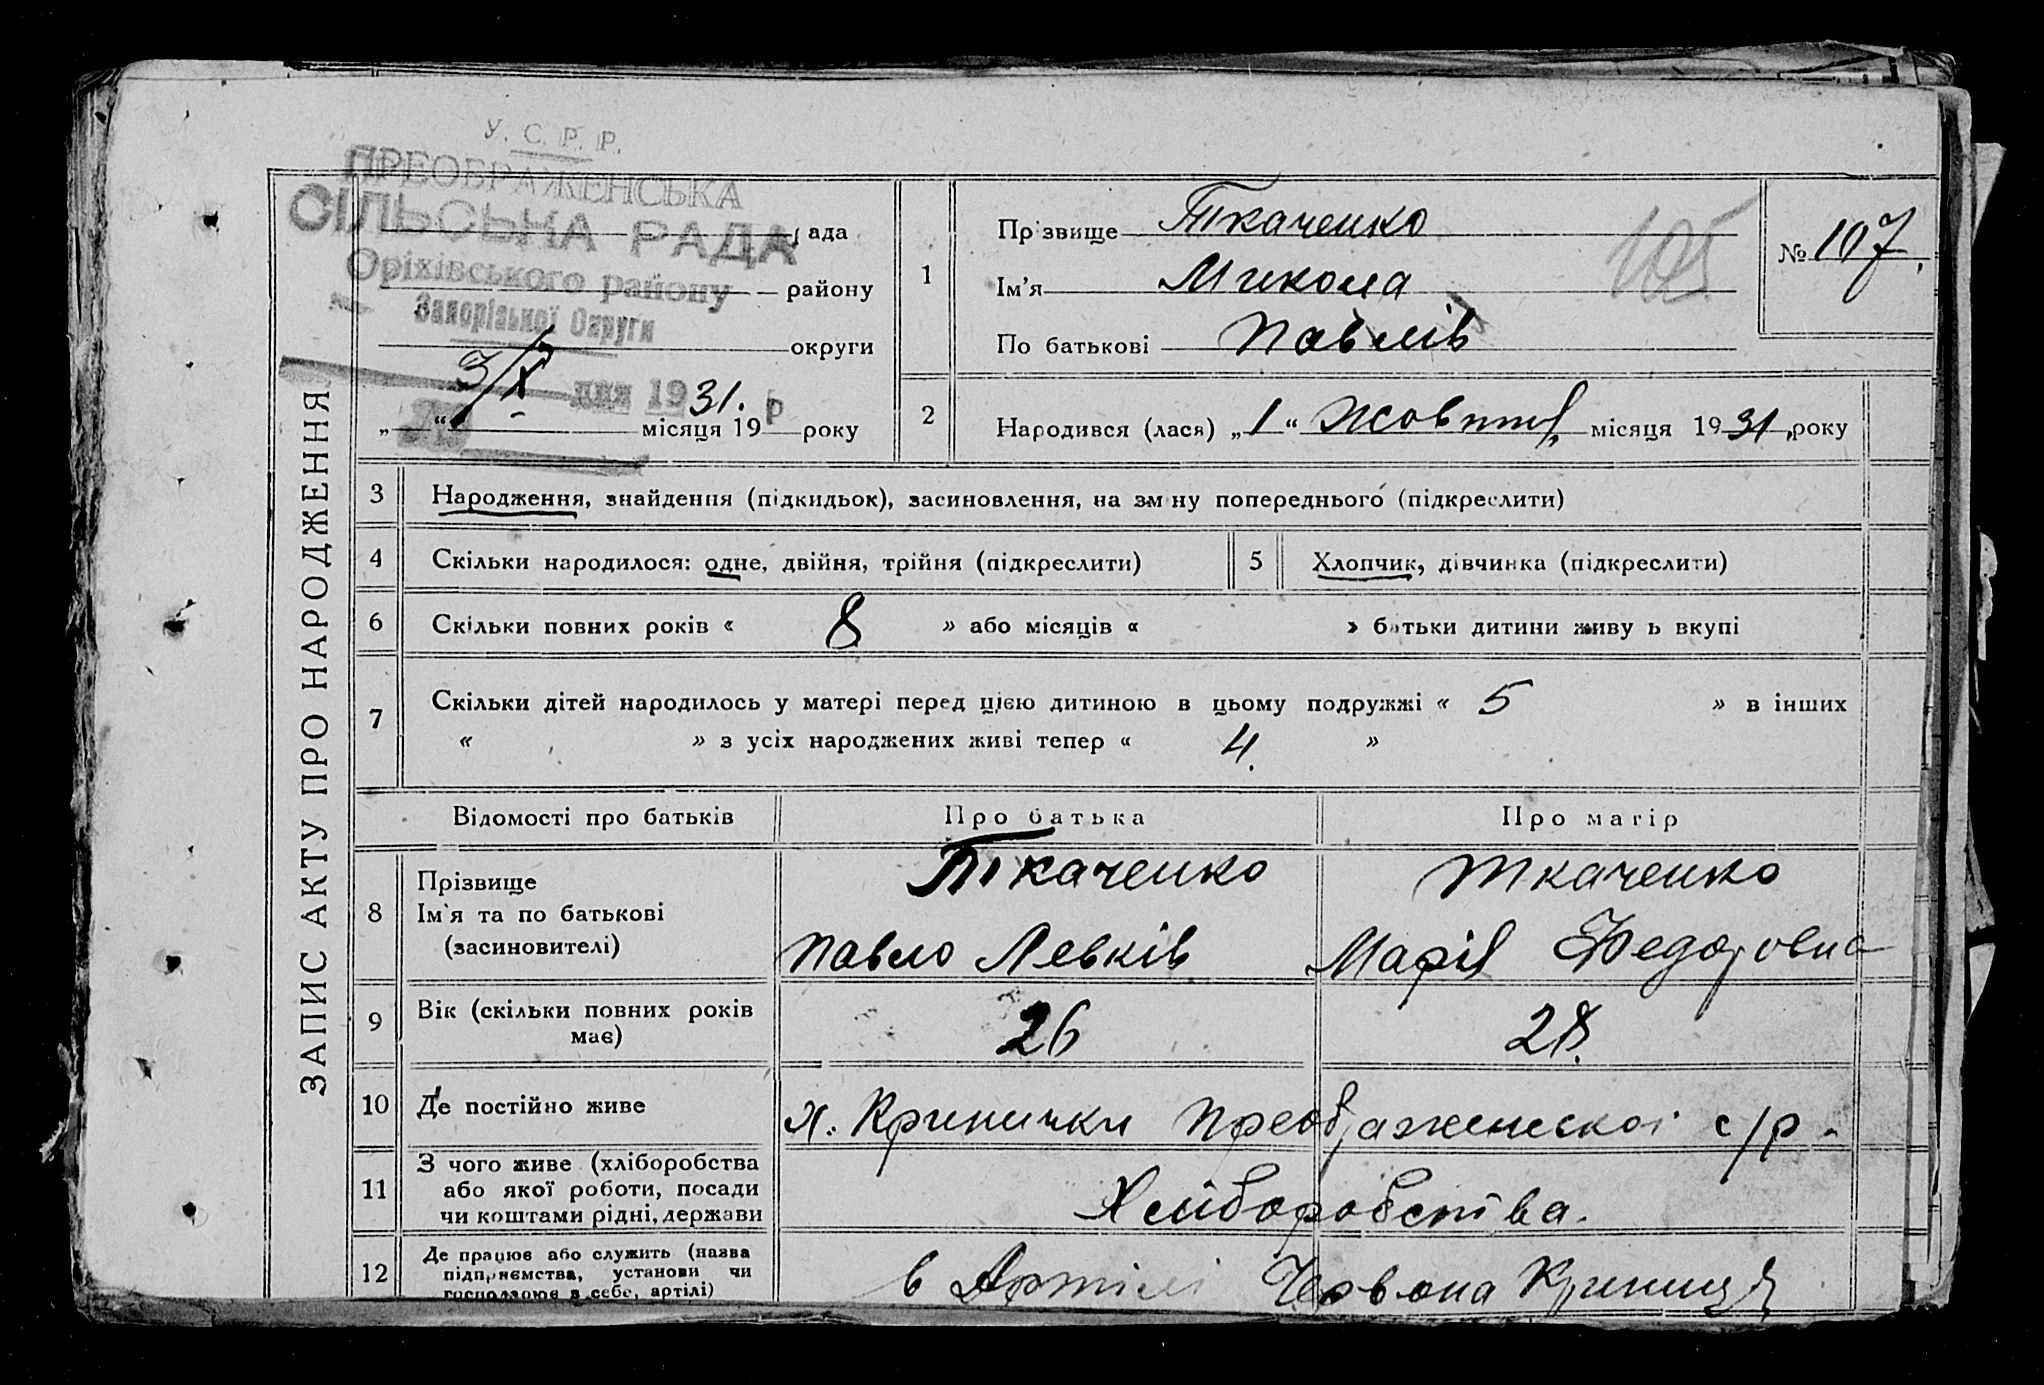 У. С. Р. Р.
ПРЕОБРАЖЕНСЬКА
СІЛЬСЬКА РАДА
Оріхівського району
Запорізької Округи
3/X дня 1931. р
рада
району
округи
„ “ місяця 19 року
ЗАПИС АКТУ ПРО НАРОДЖЕННЯ
1
Прізвище Ткаченко
Ім'я Микола
По батькові Павлів
105
№ 107.
2
Народився (лася) „1“ Жовтня місяця 1931 року
3 Народження, знайдення (підкидьок), засиновлення, на зміну попереднього (підкреслити)
4 Скільки народилося: одне, двійня, трійня (підкреслити)
5 Хлопчик, дівчинка (підкреслити)
6 Скільки повних років « 8 » або місяців « » батьки дитини живуть вкупі
7 Скільки дітей народилось у матері перед цією дитиною в цьому подружжі « 5 » в інших
« » з усіх народжених живі тепер « 4. »
Відомості про батьків Про батька Про матір
8 Прізвище Ткаченко Ткаченко
Ім'я та по батькові
(засиновителі) Павло Левків Марія Федоровна
9 Вік (скільки повних років
має) 26 28.
10 Де постійно живе х. Кринички Преображенскоі с/р.
11 З чого живе (хліборобства
або якої роботи, посади
чи коштами рідні, держави Хліборобства.
12 Де працює або служить (назва
підприємства, установи чи
господарює в себе, артілі) в Артілі Червона Криниця